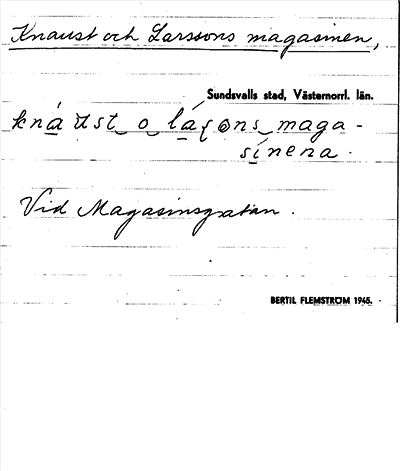 Knaust och Larssons magasinen,
Sundsvalls stad, Västernorrl. län.
knáust o láʂons maga-
sínena.
Vid Magasinsgatan.
BERTIL FLEMSTRÖM 1945.